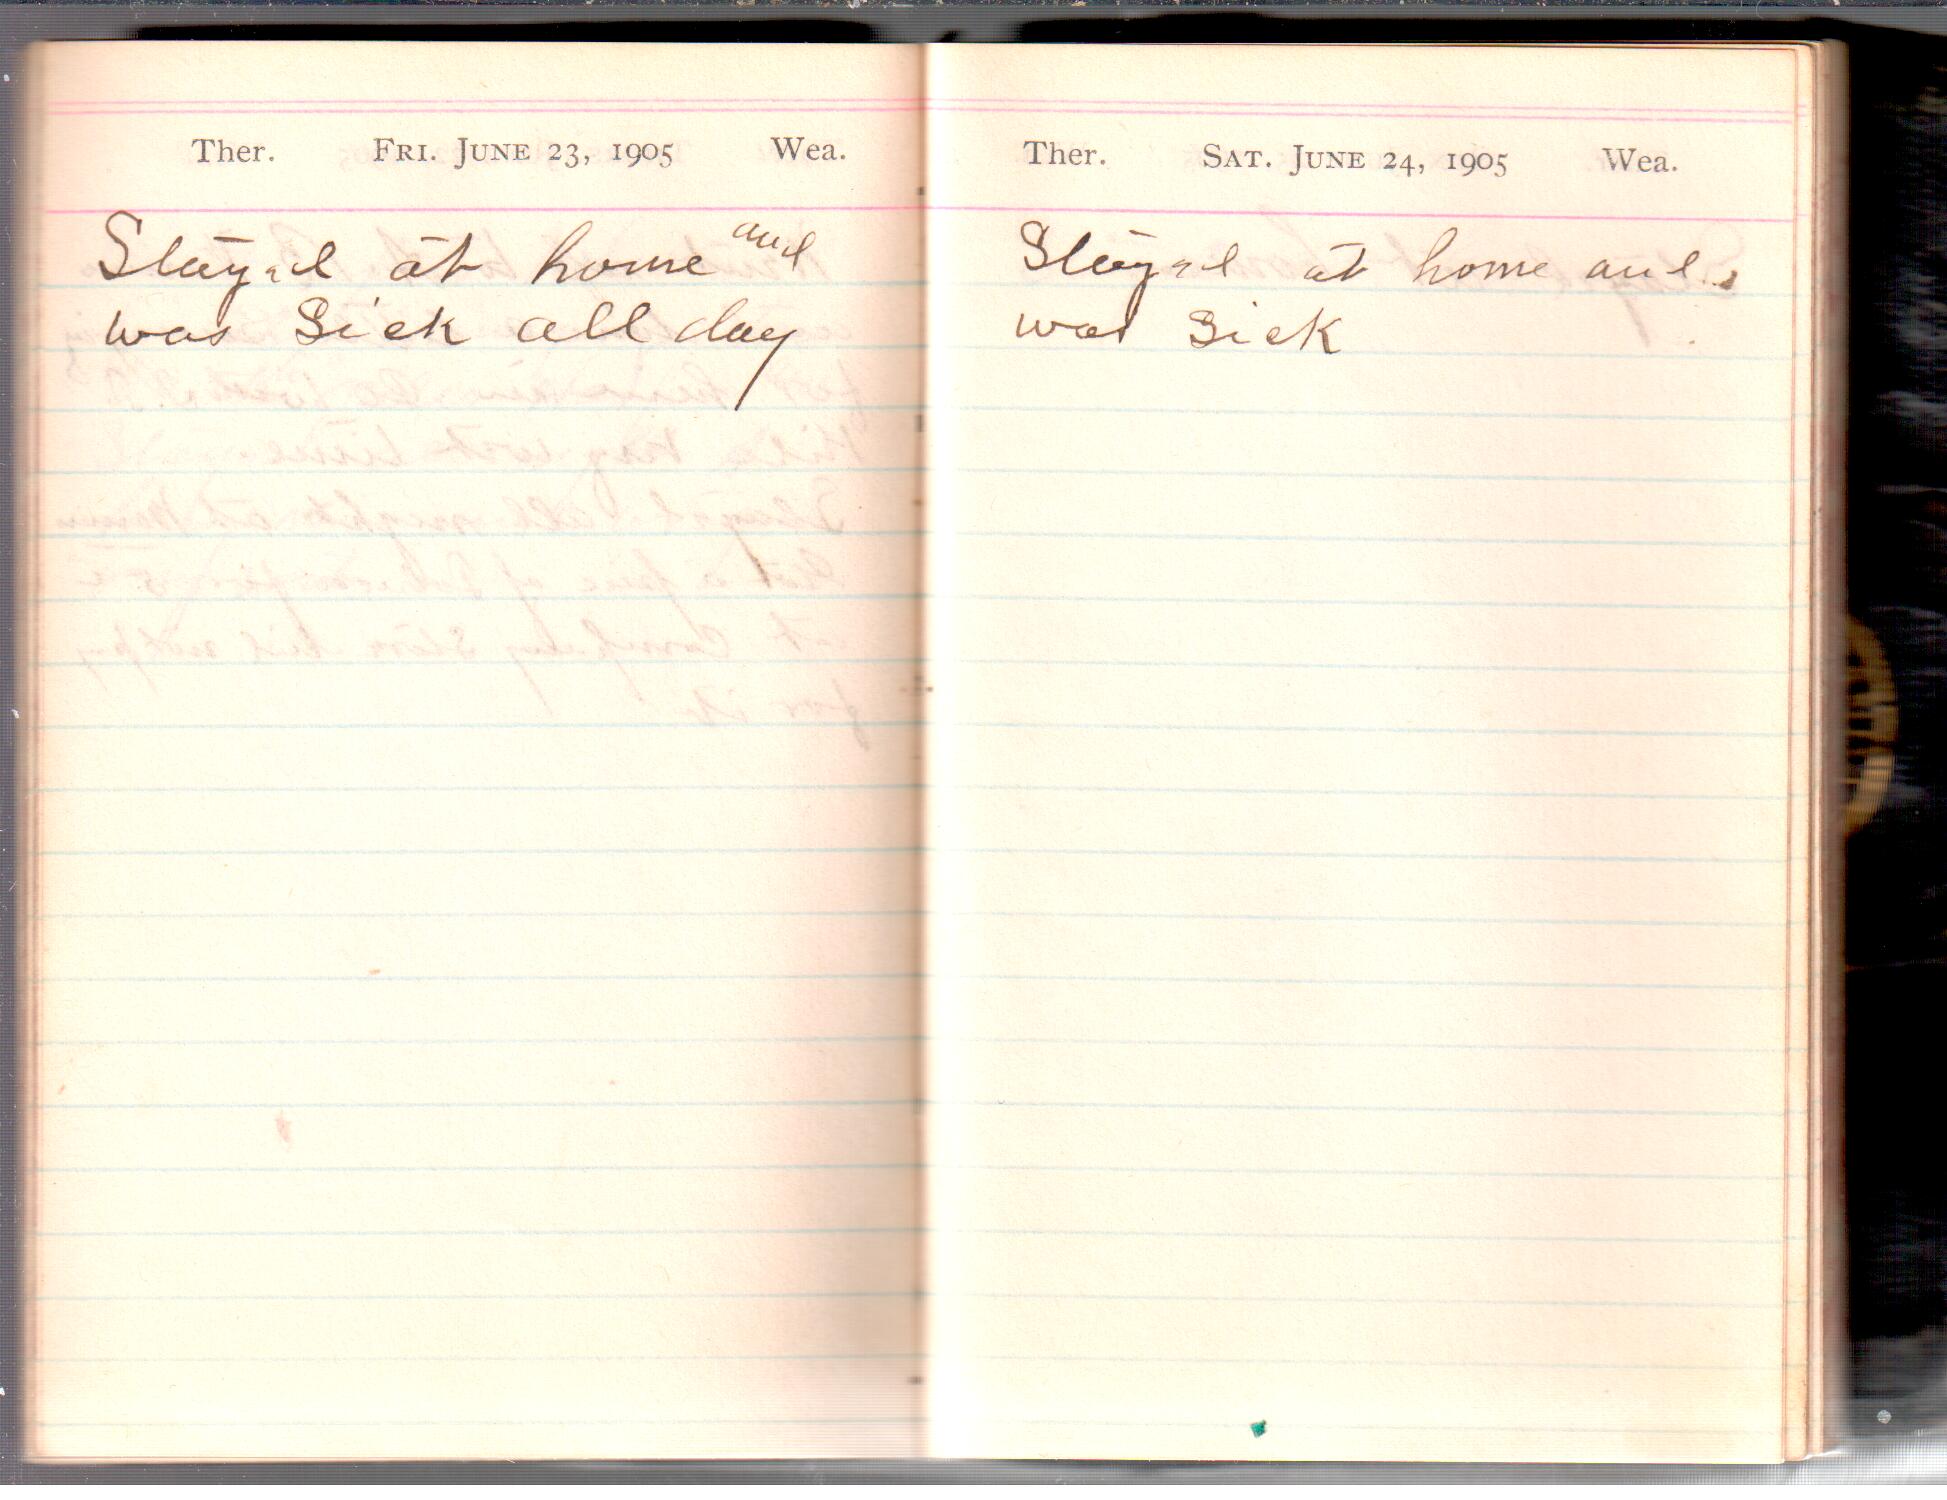 Ther. FRI. JUNE 23, 1905 Wea.
Stayed at home and
was Sick all day
Ther. SAT. JUNE 24, 1905 Wea.
Stayed at home and
was Sick